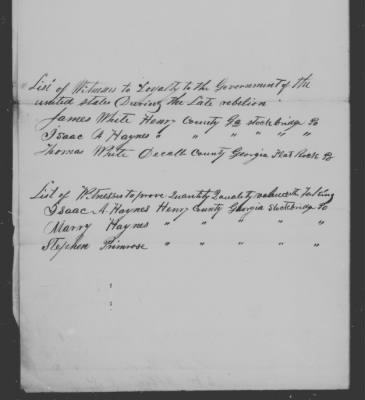 List of Witnesses to Loyalty to the Government of the
united states During the Late rebelion
James White Henry County Ga stockbridge Po
Isaac A Haynes " " " " "
Thomas White Decalb County Georgia Flat Rock Po
List of Witnesses to prove Quantity Quality value &
Isaac A Haynes Henry County Georgia stockbridge Po
Marry Haynes " " " " "
Stephen Primrose " " " " "